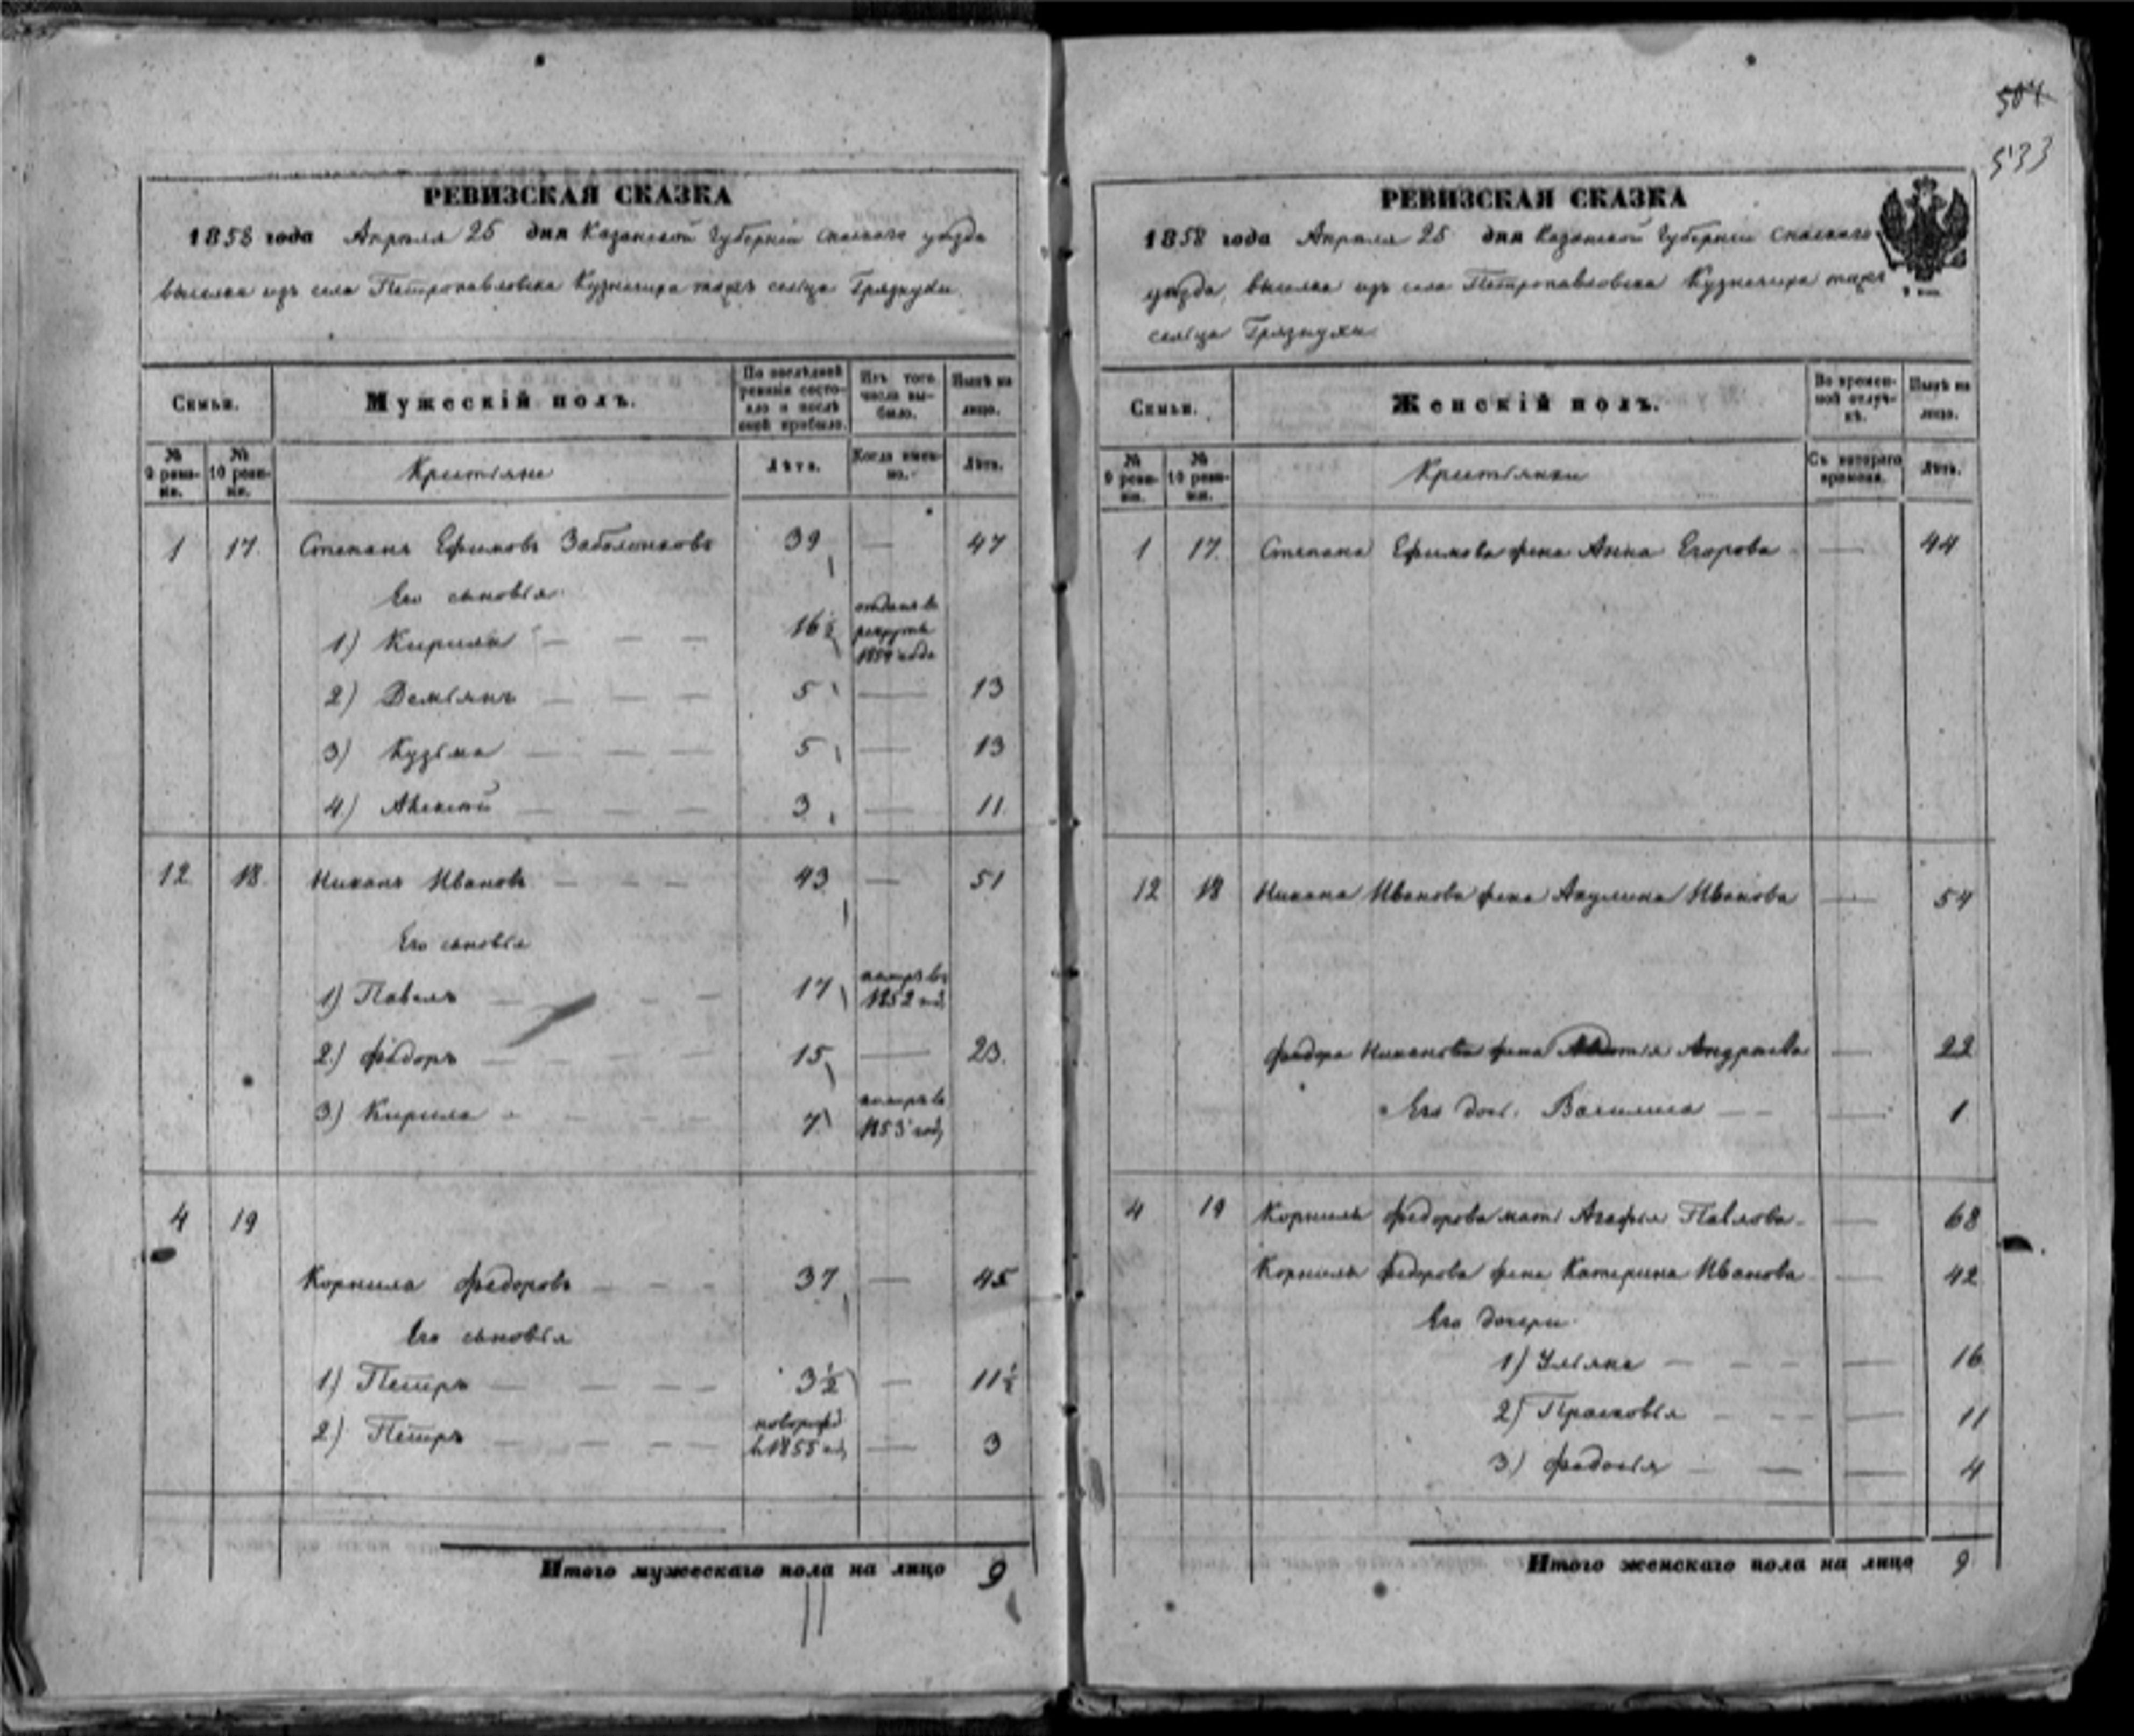 504
533
РЕВИЗСКАЯ СКАЗКА
1858 года Апреля 25 дня Казанской Губернiи Спаскаго уѣзда
выселка изъ села Петропавловска Кузнечиха тожъ сельца Грязнухи
Семьи.
Мужескій полъ.
По послѣдней ревизіи состояло и послѣ оной прибыло.
Изъ того числа выбыло.
Нынѣ на лицо.
№ 9 ревизіи.
№ 10 ревизіи.
Крестьяне
Лѣта.
Когда именно.
Лѣта.
1 17. Степанъ Ефимовъ 39 — 47
Его сыновья
1) Кирила — — — 16½ отданъ въ рекруты 1854 года
2) Демьянъ — — — 5 — 13
3) Кузьма — — — 5 — 13
4) Алексѣй — — — 3 — 11
12 18. Иванов — — — 43 — 51
Его сыновья
1) Павелъ — — — 17 померъ въ 1852 год
2) Федоръ — — — 15 — 23.
3) Кирила — — — 7 померъ въ 1853 году
4 19
Корнила Федоровъ — — — 37 — 45
Его сыновья
1) Петръ — — — 3½ — 11½
2) Петръ — — — новорожд в 1855 год — 3
Итого мужескаго пола на лицо 9
РЕВИЗСКАЯ СКАЗКА
1858 года Апреля 25 дня Казанской Губернiи Спаскаго
уѣзда, выселка изъ села Петропавловска Кузнечиха тожъ
сельца Грязнухи
Семьи.
Женскій полъ.
Во временной отлучкѣ.
Нынѣ на лицо.
№ 9 ревизіи.
№ 10 ревизіи.
Крестьянки
Съ котораго времени.
Лѣта.
1 17. Степана Ефимова жена Анна Егорова — 44
12 18 Иванова жена Акулина Иванова — 54
Федора жена Андреева — 22
Его доч. Василиса — 1
4 19 Корнилы Федорова мать Агафья Павлова — 68
Корнилы Федорова жена Катерина Иванова — 42
Его дочери
1) Ульяна — — — 16
2) Прасковья — — — 11
3) Федосья — — — 4
Итого женскаго пола на лицо 9